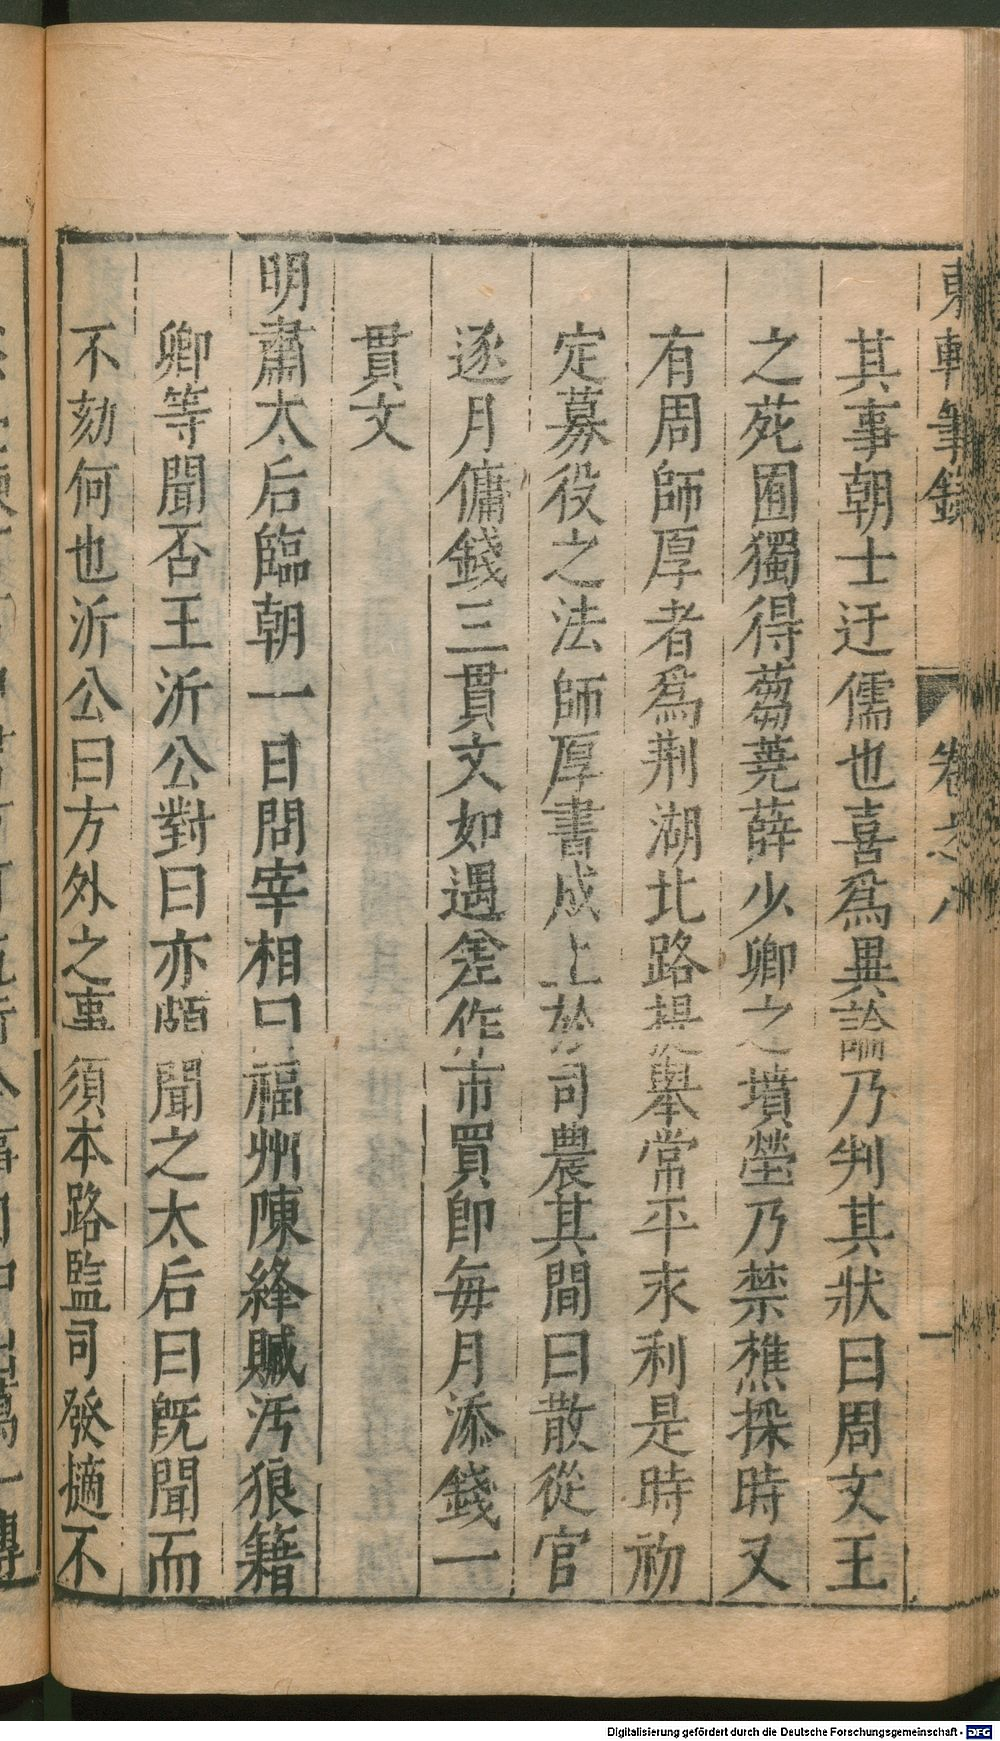 東軒筆錄 卷之八 一
其事朝士迂儒也喜爲異論乃判其狀曰周文王
之苑囿獨得芻蕘薛少卿之墳塋乃禁樵採時又
有周師厚者爲荆湖北路提舉常平求利是時初
定募役之法師厚書成上於司農其間曰散從官
逐月傭錢三貫文如遇差作市買卽每月添錢一
貫文
明肅太后臨朝一日問宰相曰福州陳絳贓汚狼籍
卿等聞否王沂公對曰亦頗聞之太后曰旣聞而
不劾何也沂公曰方外之事須本路監司發擿不
Digitalisierung gefördert durch die Deutsche Forschungsgemeinschaft - DFG